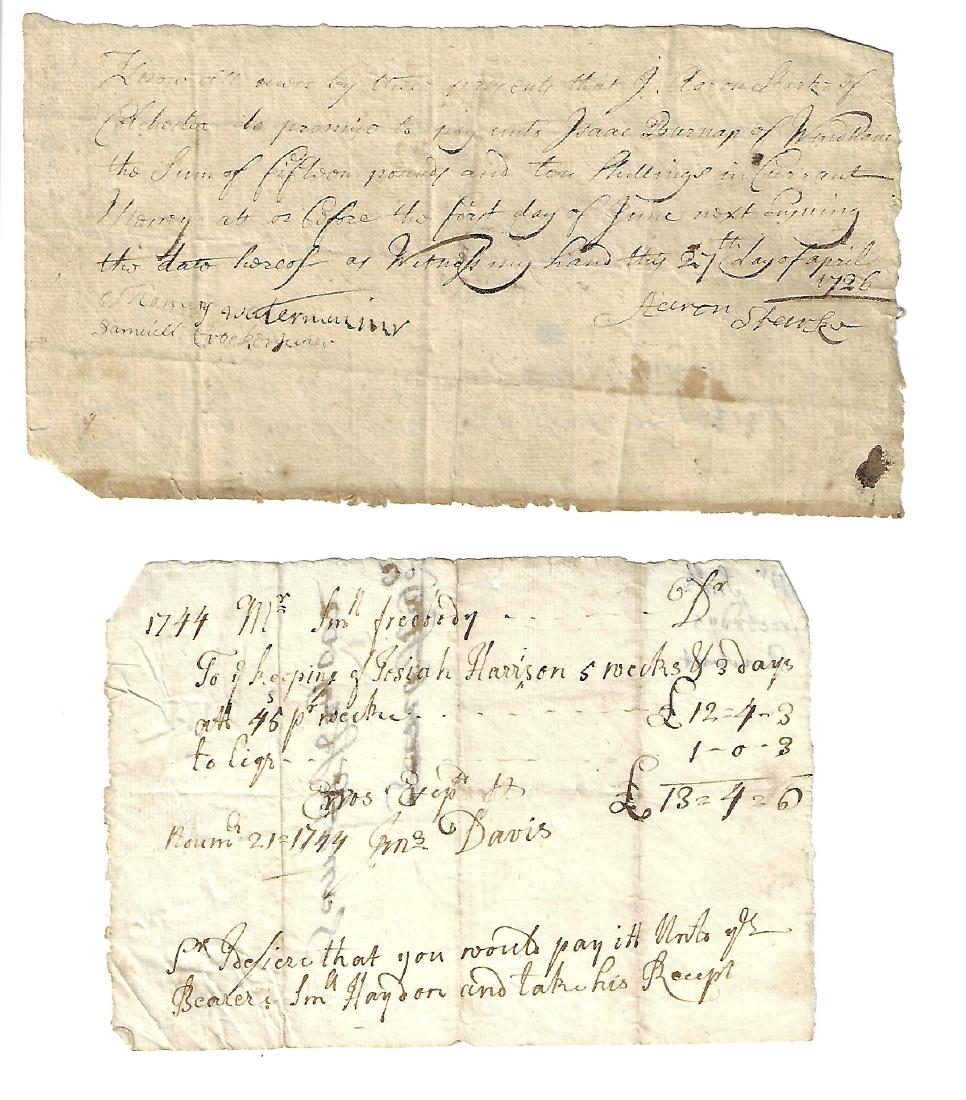 Know all men by these presents that I Aaron Stark of
Colchester do promise to pay unto Isaac Burnap of Windham
the Sum of fifteen pounds and ten Shillings in Currant
Money att or before the first day of June next Ensuing
the date hereof as Witness my hand this 27th day of april
1726
Thomas watermun
Aaron Starke
Samuell
1744 Mr Smll freebody - - - - Dr
To ye keeping of Josiah Harrison 5 weeks & 3 days
att 45s pr weeke - - - - £12-4-3
to Liqr - - - 1-0-3
Erros Exept pr £13=4=6
Novmr 21=1744 Jno Davis
Sr I desiere that you would pay itt Unto ye
Bearer Smll Haydon and take his Recept